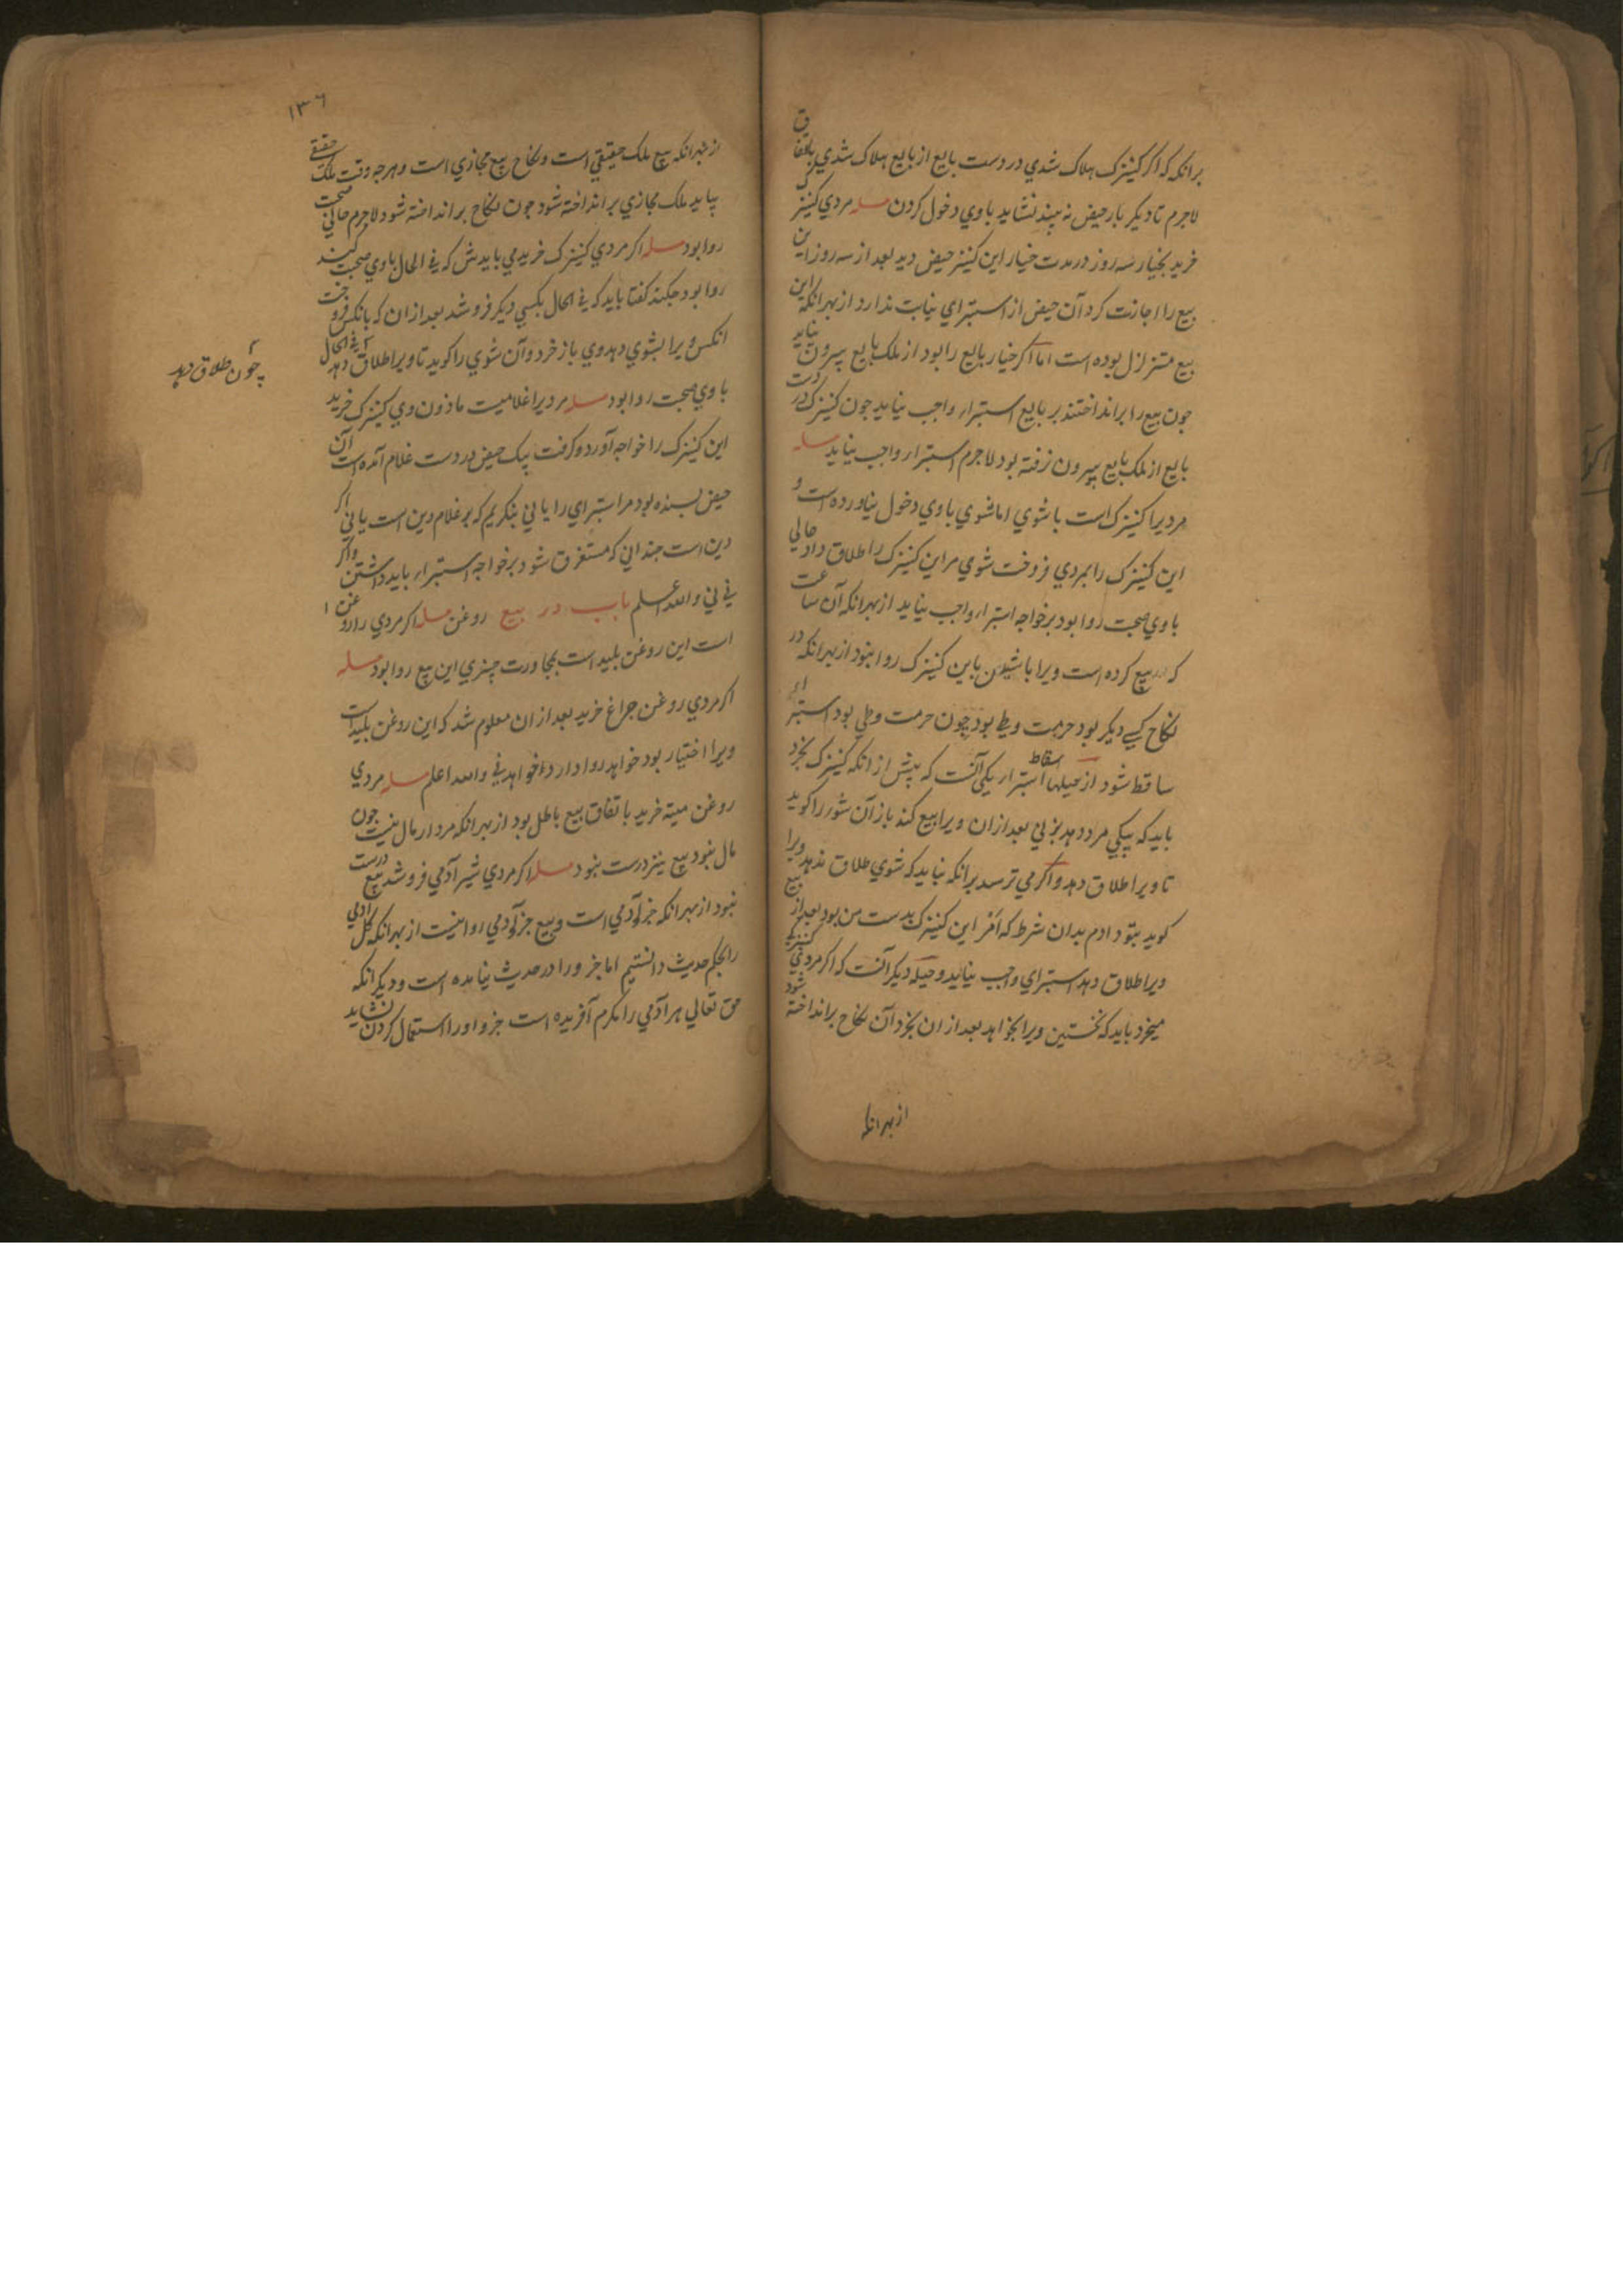 برانکه که اکر کنیزک هلاک شدي در دست بایع از بایع هلاک شدي باتفاق
لاجرم تا دیکر بار حیض نه بیند نشاید با وي دخول کردن مسله مردي کنیزک
خرید بخیار سه روز در مدت خیار این کنیز حیض دید بعد از سه روز این
بیع را اجازت کرد آن حیض از استبراي نیابت ندارد از بهر انکه این
بیع متزلزل بوده است اما اکر خیار بایع را بود از ملک بایع بیرون نیاید
جون بیع را برانداختند بر بایع استبرا واجب نیاید جون کنیزک در دست
بایع از ملک بایع بیرون نرفته بود لاجرم استبرا واجب نیاید مسله
مردیرا کنیزک است با شوي اما شوي با وي دخول نیاورده است و
این کنیزک را بمردي فروخت شوي مر این کنیزک را طلاق داد حالي
با وي صحبت روا بود بر خواجه استبرا واجب نیاید از بهر انکه آن ساعت
که بیع کرده است ویرا باین کنیزک روا نبود از بهر انکه در
نکاح کسے دیکر بود حرمت وطي بود چون حرمت وطي بود استبراء
ساقط شود از حیلها اسقاط استبرا یکي آنست که پیش از انکه کنیزک بخرد
باید که بیکي مرد دهد بزني بعد از ان ویرا بیع کند باز آن شور را کوید
تا ویرا طلاق دهد و اکر مي ترسد برانکه نباید که شوي طلاق ندهد ویرا
کوید بتو دادم بدان شرط که امر این کنیزک بدست من بود بعد از بیع
ویرا طلاق دهد استبراي واجب نیاید و حیله دیکر آنست که اکر مردي کنیزک
میخرد باید که نخستین ویرا بخواهد بعد از ان بخرد آن نکاح برانداخته شود
از بهر انکه
١٣٦
از بهر انکه بیع ملک حقیقي است و نکاح بیع مجازي است و هرجه وقت ملک حقیقے
بیاید ملک مجازي برانداخته شود جون نکاح برانداخته شود لاجرم حالي صحبت
روا بود مسله اکر مردي کنیزک خرید مي بایدش که في الحال با وي صحبت کند
روا بود جکند کفتا باید که في الحال بکسي دیکر فروشد بعد از ان که بانکس فروخت
انکس ویرا بشوي دهد وي باز خرد و آن شوي را کوید تا ویرا طلاق دهد في الحال
چون طلاق دهد
با وي صحبت روا بود مسله مردیرا غلامیست ماذون وي کنیزک خرید
این کنیزک را خواجه آورد و کرفت یک حیض در دست غلام آمده است آن
حیض بسنده بود مر استبراي را یا ني بنکریم که بر غلام دین است یا ني اکر
دین است جنداني که مستغرق شود بر خواجه استبرا باید داشتن و اکر
ني ني والله اعلم باب در بیع روغن مسله اکر مردي را روغن
است این روغن بلید است بمجاورت چیزي این بیع روا بود مسله
اکر مردي روغن جراغ خرید بعد از ان معلوم شد که این روغن بلید است
ویرا اختیار بود خواهد روا دارد خواهد ني والله اعلم مسله مردي
روغن میته خرید باتفاق بیع باطل بود از بهر انکه مردار مال نیست جون
مال نبود بیع نیز درست نبود مسله اکر مردي شیر آدمي فروشد بیع درست
نبود از بهر انکه جزو آدمي است و بیع جزو آدمي روا نیست از بهر انکه کل آدمي
را بحکم حدیث دانستیم اما جزو را در حدیث نیامده است و دیکر انکه
حق تعالي هر آدمي را مکرم آفریده است جزو او را استعمال کردن نشاید